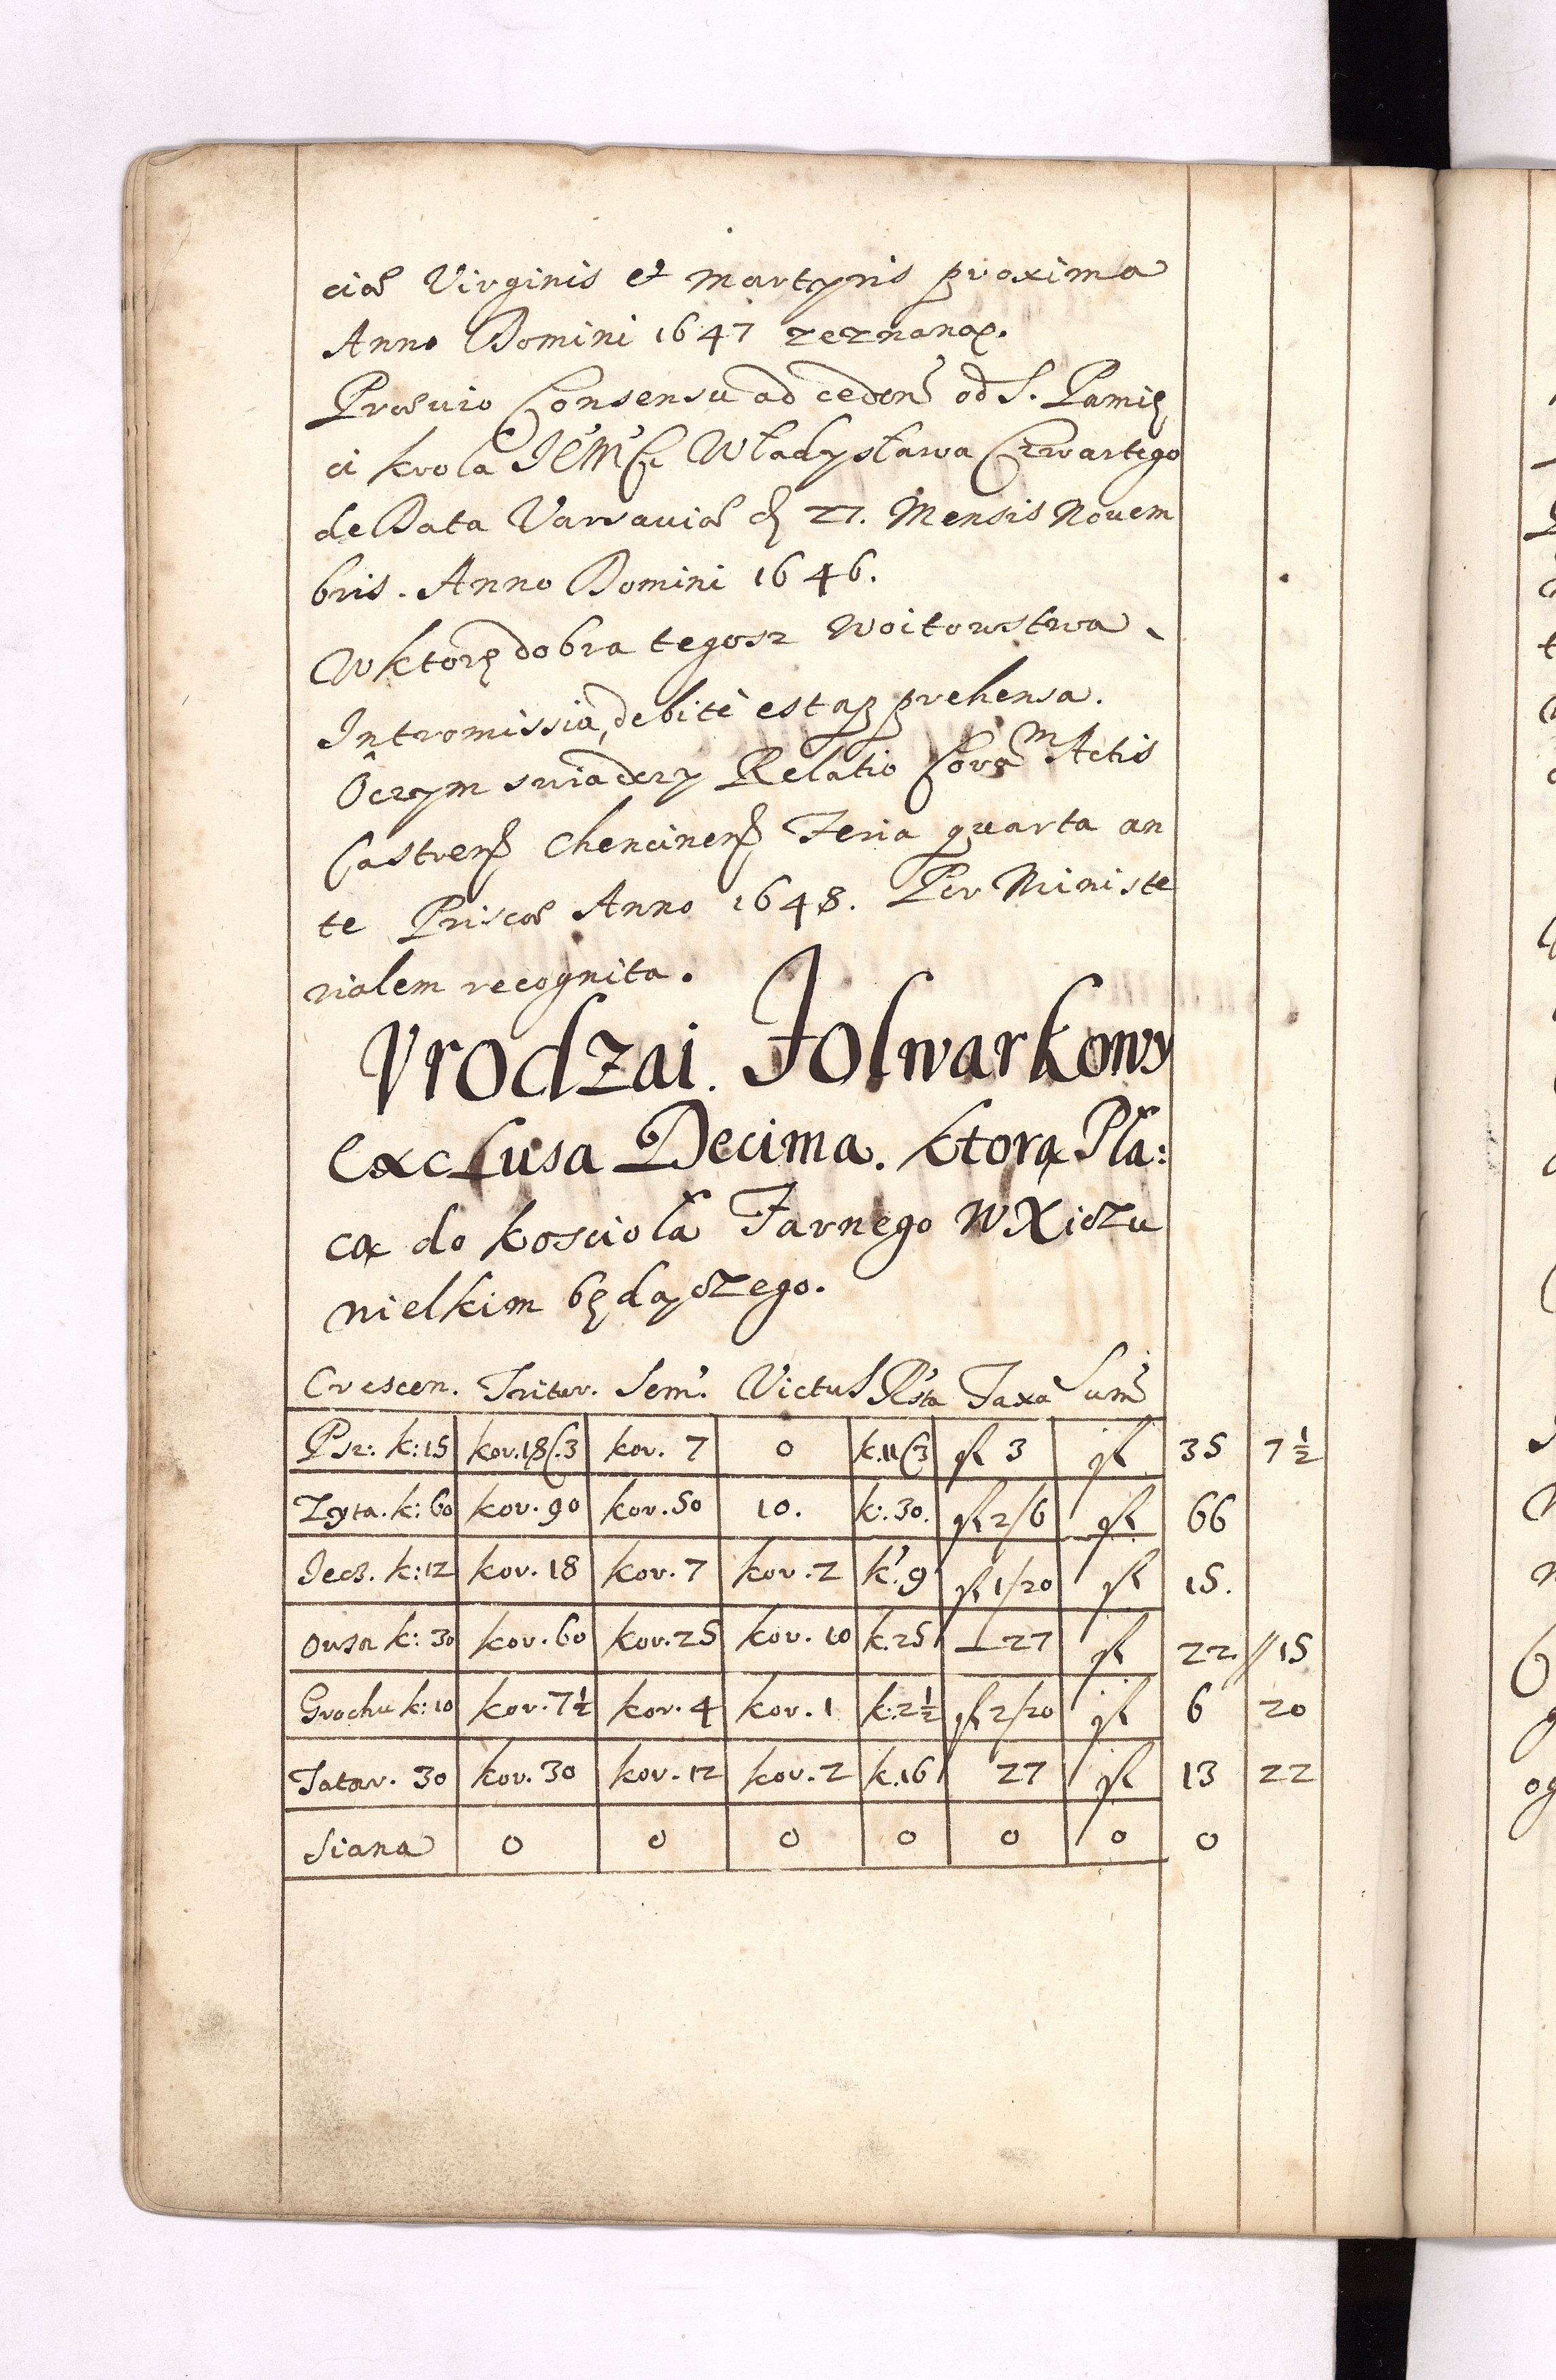 ciæ Virginis et Martyris proxima
Anno Domini 1647 zeznaną.
Præuio Consensu ad ceden̄ od S. Pamię
ci krola JE͛M͛ści Władysława Czwartego
de Data Varsauiæ d 27. Mensis Nouem
bris. Anno Domini 1646.
W ktorę dobra tegosz Woitowstwa
Intromissia, debitè est apprehensa.
O czym swiadczy Relatio Coram Actis
Castren̄ Chencinen̄ Feria quarta an
te Priscæ Anno 1648. Per Ministe
rialem recognita.
Vrodzai. Folwarkowy
exclusa Decima. ktorą Pła:
cą do kosciołá Farnego w Xiążu
wielkim będączego.
Crescen. Tritur. Sem. Victus Rsta Taxa Sum̄
Psz: k: 15 kor. 18 ć. 3 kor. 7 0 k. 11 ć 3 fl 3 fl 35 7 ½
Zyta. k: 60 kor. 90 kor. 50 10. k: 30. fl 2/6 fl 66
Iecz. k: 12 kor. 18 kor. 7 kor. 2 k: 9 fl 1/20 fl 15.
Owsa k: 30 kor. 60 kor. 25 kor. 10 k. 25 — 27 fl 22 // 15
Grochu k: 10 kor. 7 ½ kor. 4 kor. 1 k: 2 ½ fl 2/20 fl 6 20
Tatar. 30 kor. 30 kor. 12 kor. 2 k. 16 27 fl 13 22
Siana 0 0 0 0 0 0 0